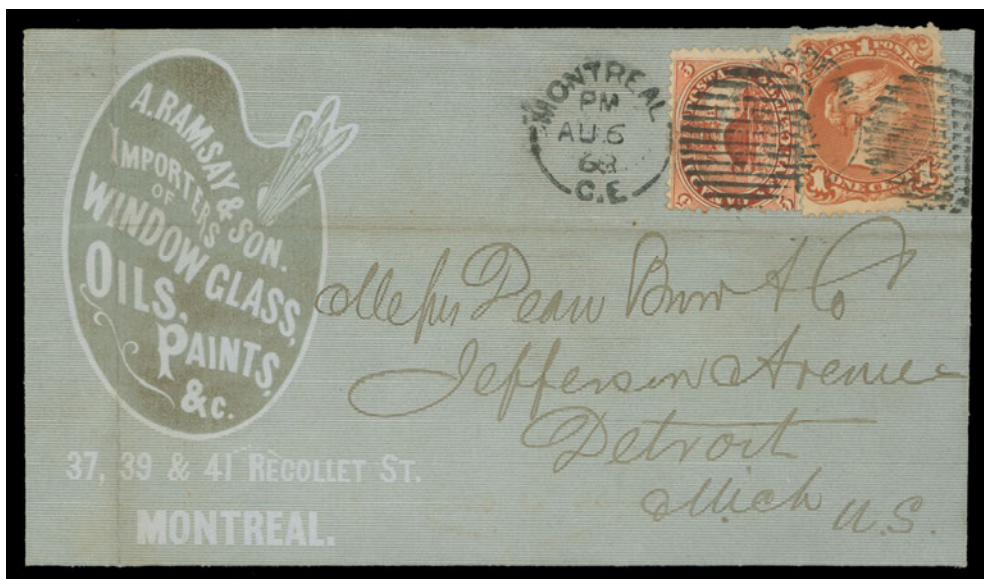 A. RAMSAY & SON.
IMPORTERS
OF
WINDOW GLASS,
OILS,
PAINTS,
&c.
37, 39 & 41 RECOLLET ST.
MONTREAL.
MONTREAL
PM
AU 6
68
C.E
1
ADA POSTAG
1 ONE CENT 1
Messrs Dean Brow & Co
Jefferson Avenue
Detroit
Mich U.S.